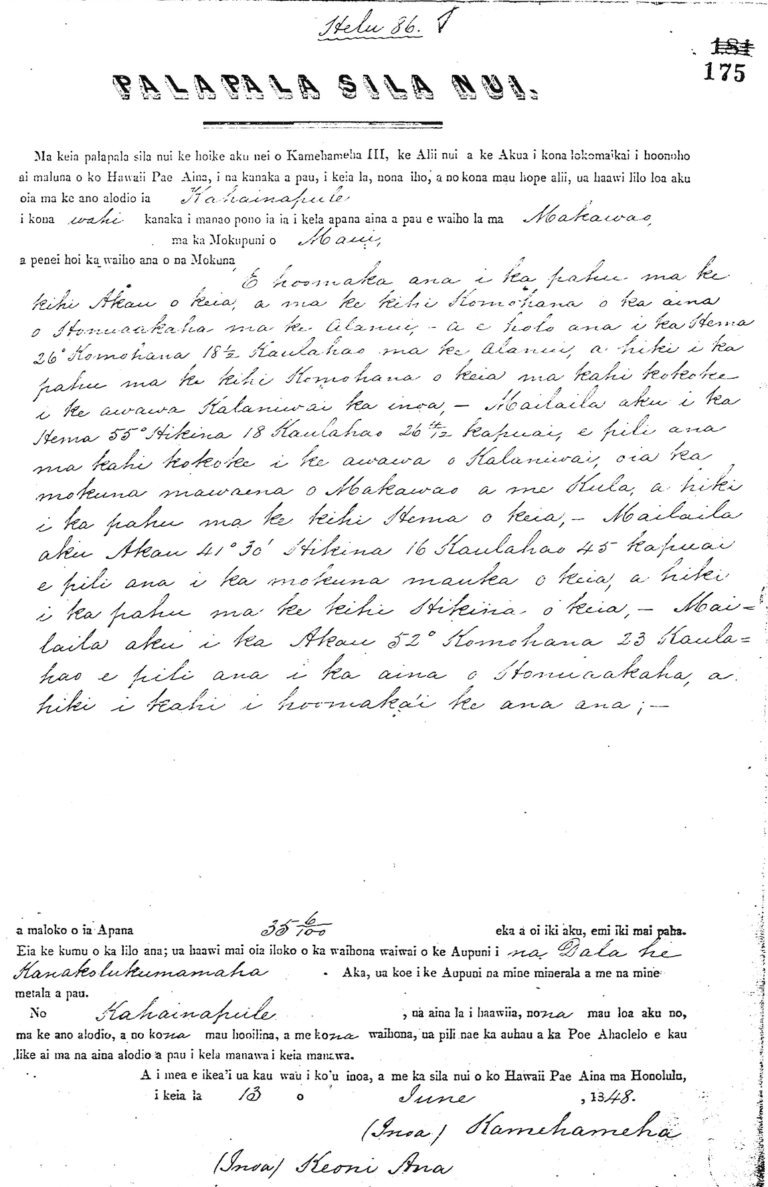 Helu 86.
181
175
PALAPALA SILA NUI.
Ma keia palapala sila nui ke hoike aku nei o Kamehameha III, ke Alii nui a ke Akua i kona lokomaikai i hoonoho
ai maluna o ko Hawaii Pae Aina, i na kanaka a pau, i keia la, nona iho, a no kona mau hope alii, ua haawi lilo loa aku
oia ma ke ano alodio ia Kahainapule
i kona wahi kanaka i manao pono ia ia i kela apana aina a pau e waiho la ma Makawao,
ma ka Mokupuni o Maui,
a penei hoi ka waiho ana o na Mokuna
E hoomaka ana i ka pahu ma ke
kihi Akau o keia, a ma ke kihi Komohana o ka aina
o Honuaakaha ma ke Alanui, - a e holo ana i ka Hema
26° Komohana 18½ Kaulahao ma ke Alanui, a hiki i ka
pahu ma ke kihi Komohana o keia ma kahi kokoke
i ke awawa Kalaniwai ka inoa, - Mailaila aku i ka
Hema 55° Hikina 18 Kaulahao 26 kapuai, e pili ana
ma kahi kokoke i ke awawa o Kalaniwai, oia ka
mokuna mawaena o Makawao a me Kula, a hiki
i ka pahu ma ke kihi Hema o keia, - Mailaila
aku Akau 41° 30' Hikina 16 Kaulahao 45 kapuai
e pili ana i ka mokuna mauka o keia, a hiki
i ka pahu ma ke kihi Hikina o keia, - Mai=
laila aku i ka Akau 52° Komohana 23 Kaula=
hao e pili ana i ka aina o Honuaakaha, a
hiki i kahi i hoomaka'i ke ana ana ; -
a maloko o ia Apana 35 6/100 eka a oi iki aku, emi iki mai paha.
Eia ke kumu o ka lilo ana; ua haawi mai oia iloko o ka waihona waiwai o ke Aupuni i na Dala he
Kanakolukumamaha . Aka, ua koe i ke Aupuni na mine minerala a me na mine
metala a pau.
No Kahainapule , na aina la i haawiia, nona mau loa aku no,
ma ke ano alodio, a no kona mau hooilina, a me kona waihona, ua pili nae ka auhau a ka Poe Ahaolelo e kau
like ai ma na aina alodio a pau i kela manawa i keia manawa.
A i mea e ikea'i ua kau wau i ko'u inoa, a me ka sila nui o ko Hawaii Pae Aina ma Honolulu,
i keia la 13 o June , 1848.
(Inoa) Kamehameha
(Inoa) Keoni Ana